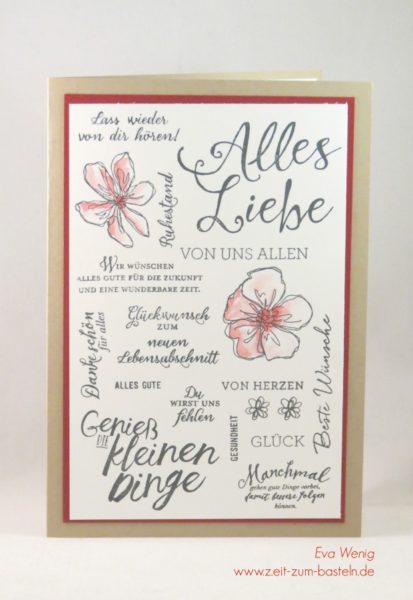 Lass wieder
von dir hören!
Alles
Liebe
Ruhestand
VON UNS ALLEN
WIR WÜNSCHEN
ALLES GUTE FÜR DIE ZUKUNFT
UND EINE WUNDERBARE ZEIT.
Dankeschön
für alles
Glückwunsch
ZUM
neuen
Lebensabschnitt
Beste Wünsche
ALLES GUTE
Du
WIRST UNS
fehlen
VON HERZEN
GESUNDHEIT
GLÜCK
Genieß
DIE
kleinen
Dinge
Manchmal
gehen gute Dinge vorbei,
damit bessere folgen
können.
Eva Wenig
www.zeit-zum-basteln.de